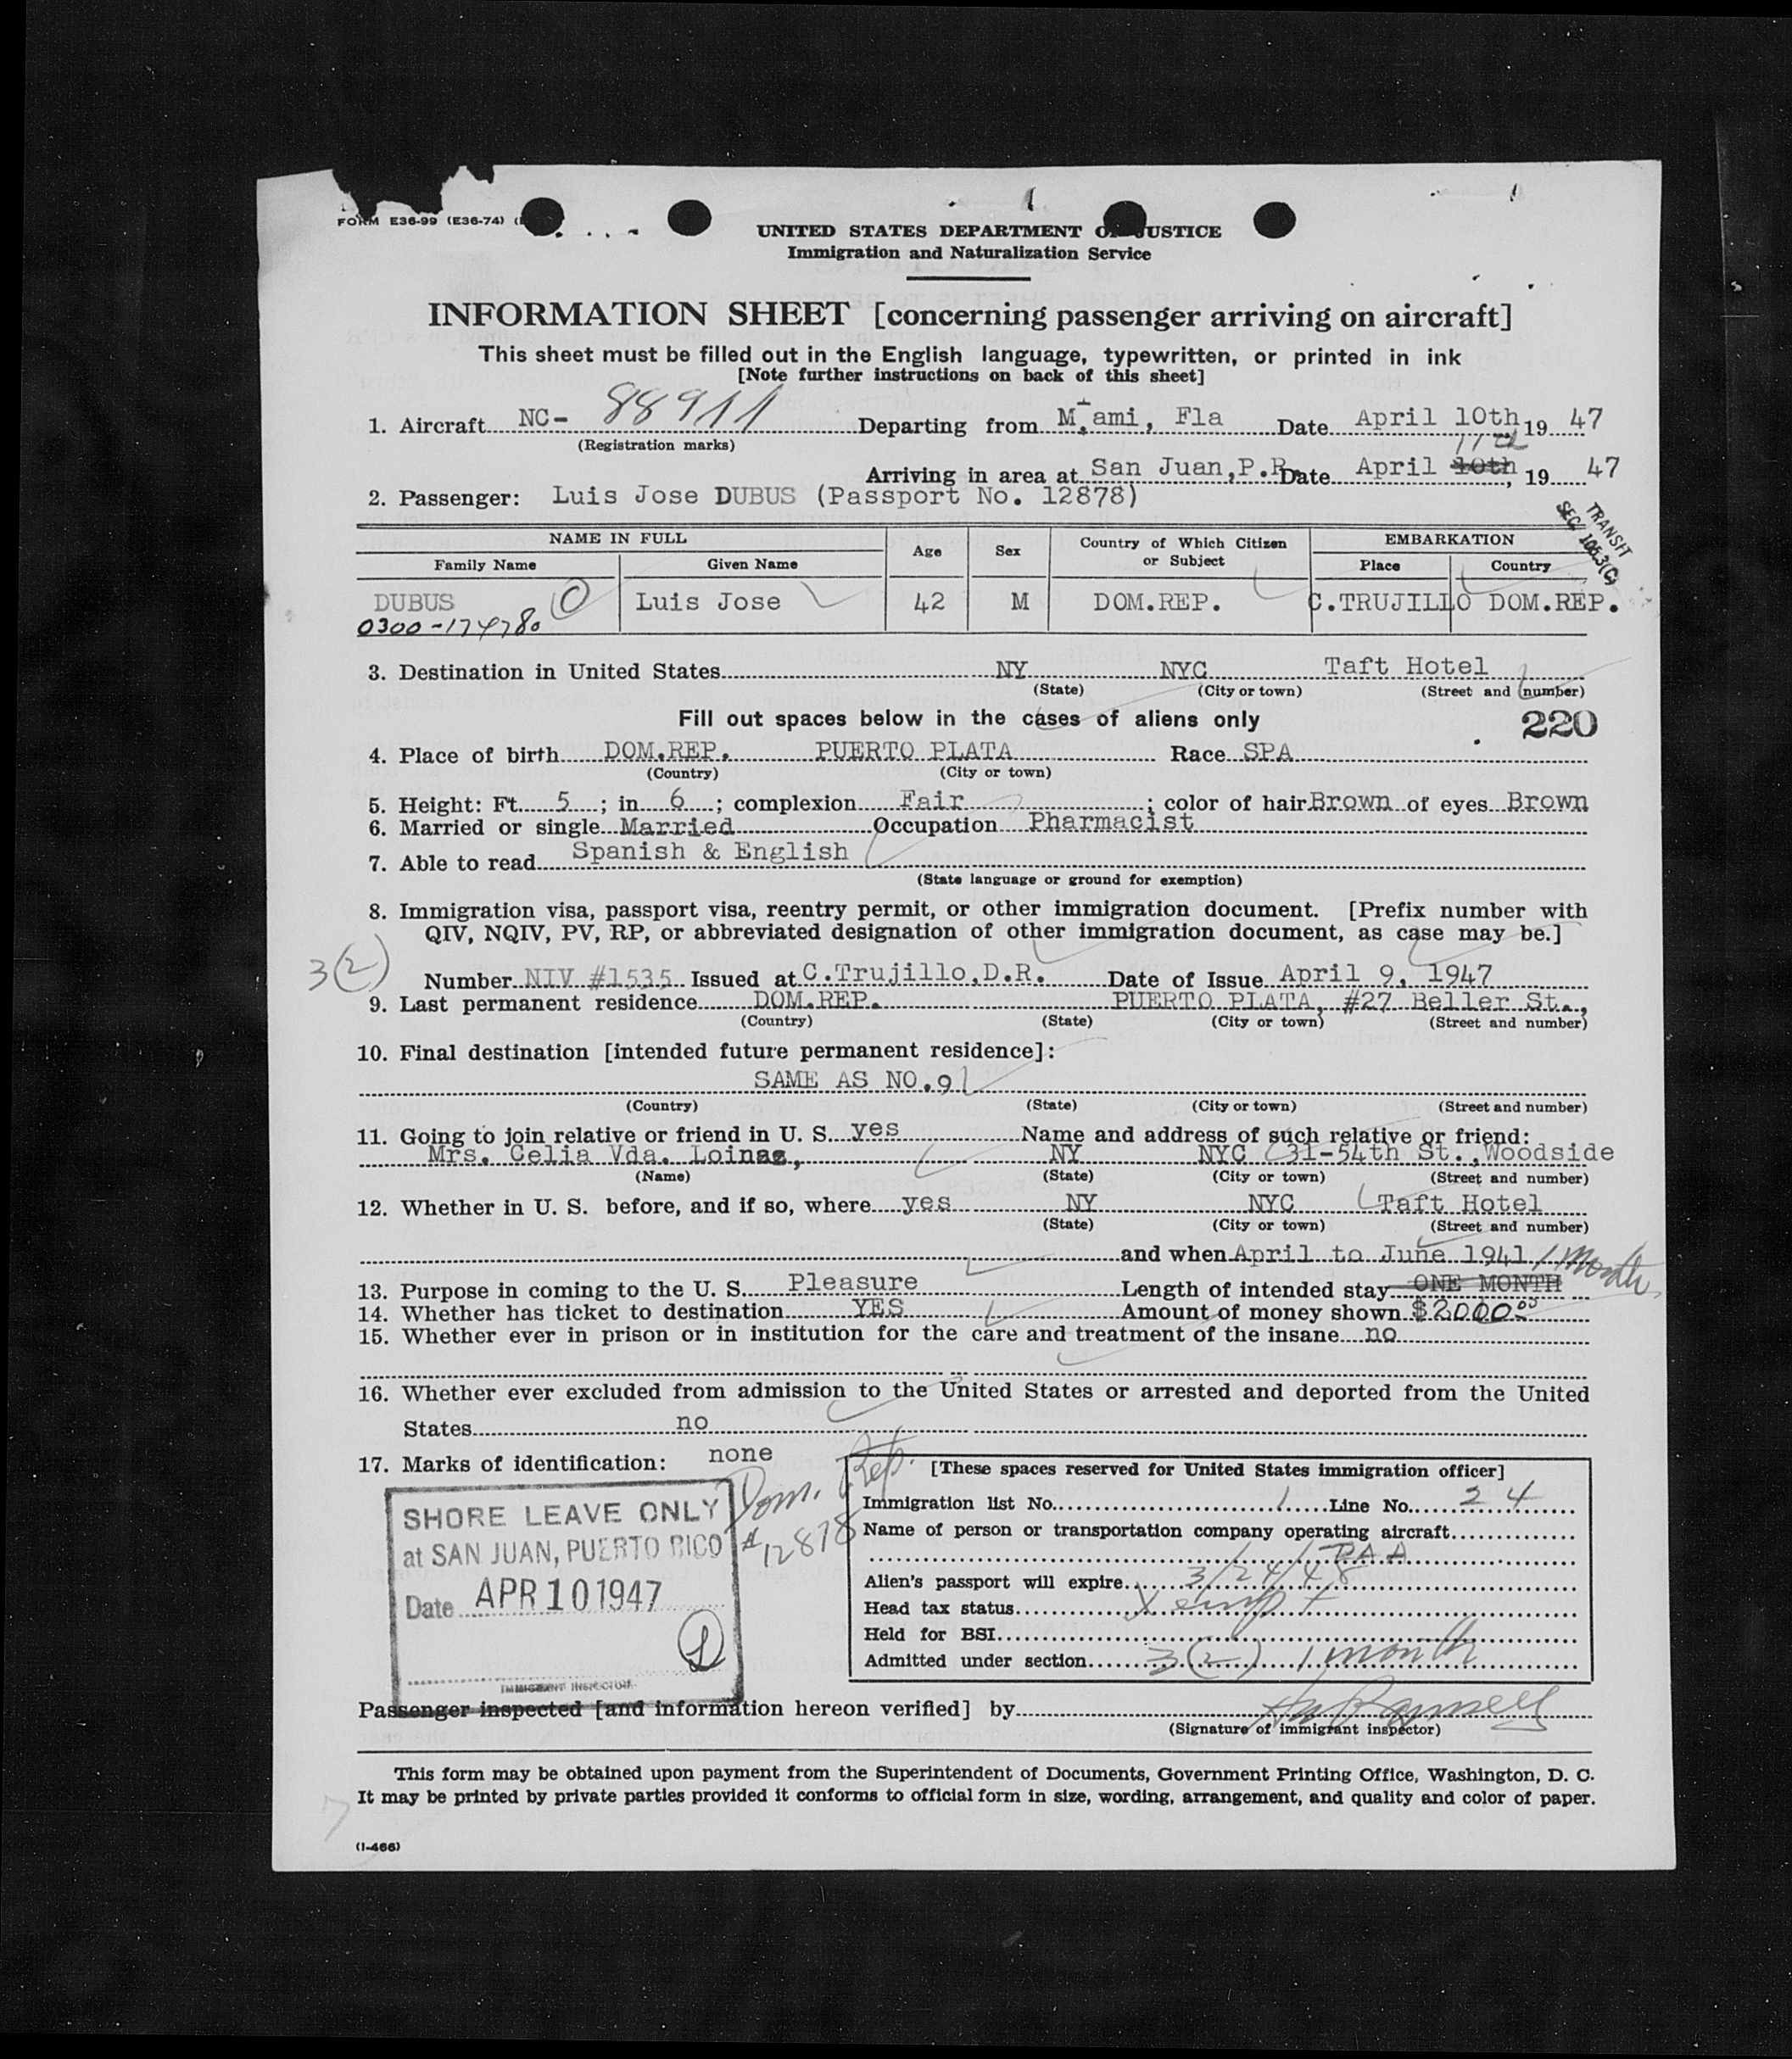 FORM E36-99 (E36-74)
UNITED STATES DEPARTMENT OF JUSTICE
Immigration and Naturalization Service
INFORMATION SHEET [concerning passenger arriving on aircraft]
This sheet must be filled out in the English language, typewritten, or printed in ink
[Note further instructions on back of this sheet]
1. Aircraft NC- 88911 Departing from Miami, Fla Date April 10th 19 47
(Registration marks)
11th
Arriving in area at San Juan, P.R. Date April 10th, 19 47
2. Passenger: Luis Jose DUBUS (Passport No. 12878)
TRANSIT
SEC 105.3(C)
NAME IN FULL Age Sex Country of Which Citizen or Subject EMBARKATION
Family Name Given Name Place Country
DUBUS Luis Jose 42 M DOM.REP. C.TRUJILLO DOM.REP.
0300-174780
3. Destination in United States NY NYC Taft Hotel
(State) (City or town) (Street and number)
Fill out spaces below in the cases of aliens only 220
4. Place of birth DOM.REP. PUERTO PLATA Race SPA
(Country) (City or town)
5. Height: Ft. 5; in 6; complexion Fair; color of hair Brown of eyes Brown
6. Married or single Married Occupation Pharmacist
7. Able to read Spanish & English
(State language or ground for exemption)
8. Immigration visa, passport visa, reentry permit, or other immigration document. [Prefix number with
QIV, NQIV, PV, RP, or abbreviated designation of other immigration document, as case may be.]
3(2)
Number NIV #1535 Issued at C.Trujillo,D.R. Date of Issue April 9, 1947
9. Last permanent residence DOM.REP. PUERTO PLATA, #27 Beller St.,
(Country) (State) (City or town) (Street and number)
10. Final destination [intended future permanent residece]:
SAME AS NO.9
(Country) (State) (City or town) (Street and number)
11. Going to join relative or friend in U. S. yes Name and address of such relative or friend:
Mrs. Celia Vda. Loinaz, NY NYC 31-54th St., Woodside
(Name) (State) (City or town) (Street and number)
12. Whether in U. S. before, and if so, where yes NY NYC Taft Hotel
(State) (City or town) (Street and number)
and when April to June 1941
1 Month
13. Purpose in coming to the U. S. Pleasure Length of intended stay ONE MONTH
14. Whether has ticket to destination YES Amount of money shown $2000.00
15. Whether ever in prison or in institution for the care and treatment of the insane no
16. Whether ever excluded from admission to the United States or arrested and deported from the United
States no
17. Marks of identification: none
Dom. Rep.
#12878
SHORE LEAVE ONLY
at SAN JUAN, PUERTO RICO
Date APR 10 1947
IMMIGRANT INSPECTOR
[These spaces reserved for United States immigration officer]
Immigration list No. 1 Line No. 24
Name of person or transportation company operating aircraft
PAA
Alien's passport will expire 3/24/48
Head tax status Xempt
Held for BSI
Admitted under section 3(2) 1 month
Passenger inspected [and information hereon verified] by
(Signature of immigrant inspector)
This form may be obtained upon payment from the Superintendent of Documents, Government Printing Office, Washington, D. C.
It may be printed by private parties provided it conforms to official form in size, wording, arrangement, and quality and color of paper.
7
(I-466)